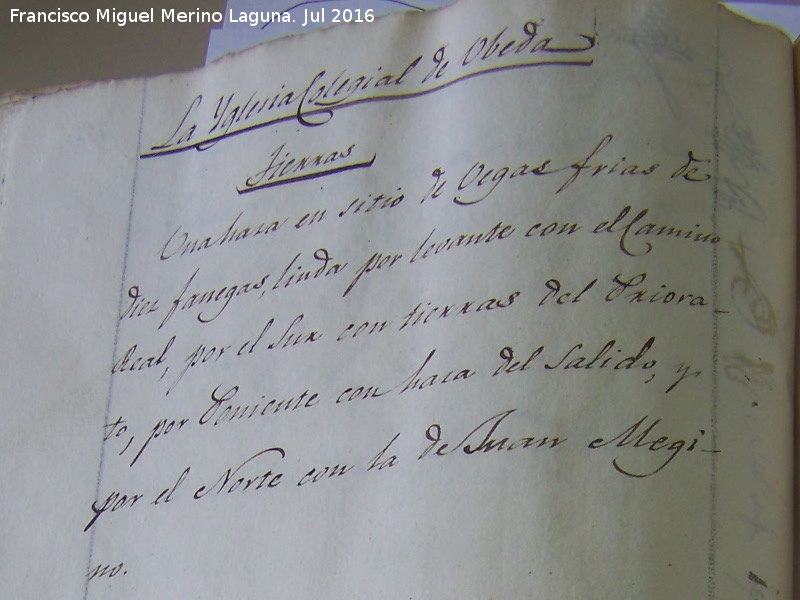 Francisco Miguel Merino Laguna. Jul 2016
La Yglesia Colegial de Obeda
Tierras
Una haza en sitio de Vegas frias de
diez fanegas, linda por levante con el Camino
Real, por el Sur con tierras del Priora-
to, por Poniente con haza del Salido, y
por el Norte con la de Juan Megi-
no.